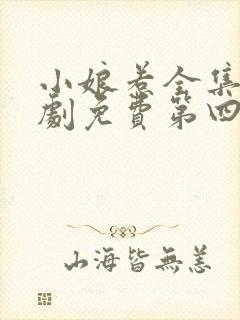 小娘惹全集
劇免費第四
山海皆無恙